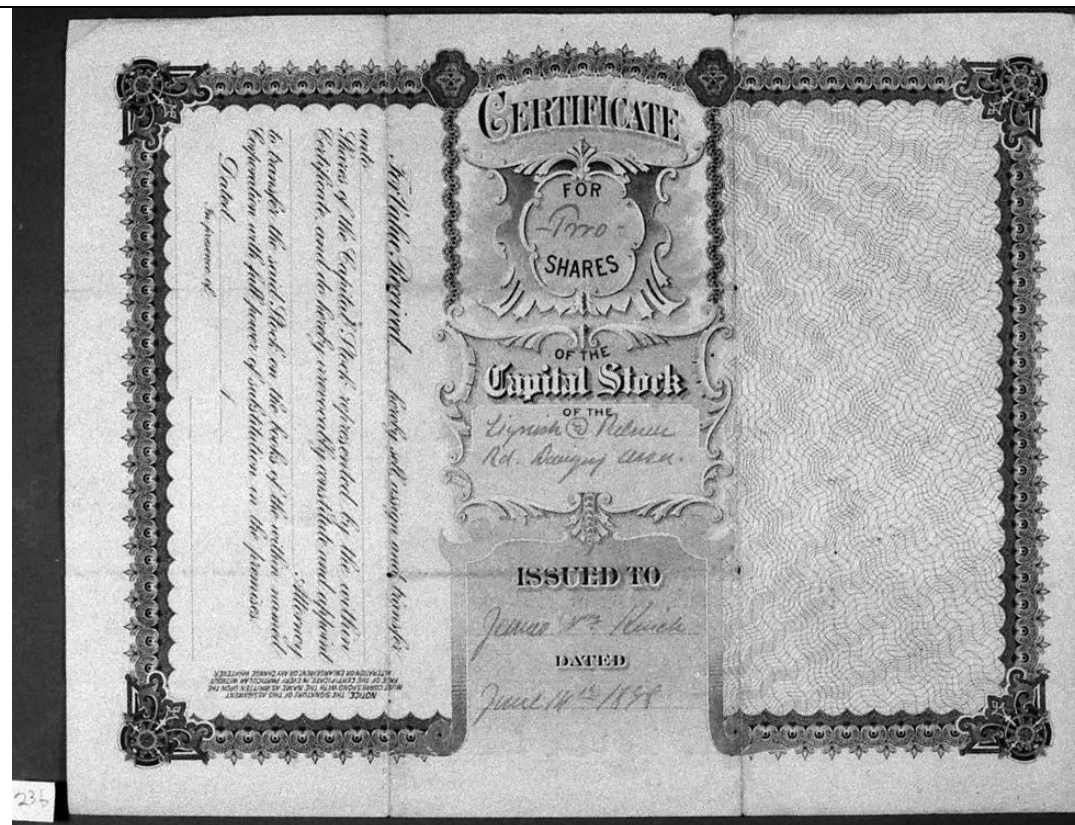 CERTIFICATE
FOR
-Two-
SHARES
OF THE
Capital Stock
OF THE
&
Rd.
ISSUED TO
James
DATED
June 14th 1898
For Value Received hereby sell, assign and transfer
unto
Shares of the Capital Stock represented by the within
Certificate and do hereby irrevocably constitute and appoint
Attorney
to transfer the said Stock on the books of the within named
Corporation with full power of substitution in the premises.
Dated 1
In presence of
NOTICE. THE SIGNATURE OF THIS ASSIGNMENT
MUST CORRESPOND WITH THE NAME AS WRITTEN UPON THE
FACE OF THE CERTIFICATE, IN EVERY PARTICULAR WITHOUT
ALTERATION OR ENLARGEMENT OR ANY CHANGE WHATEVER.
236